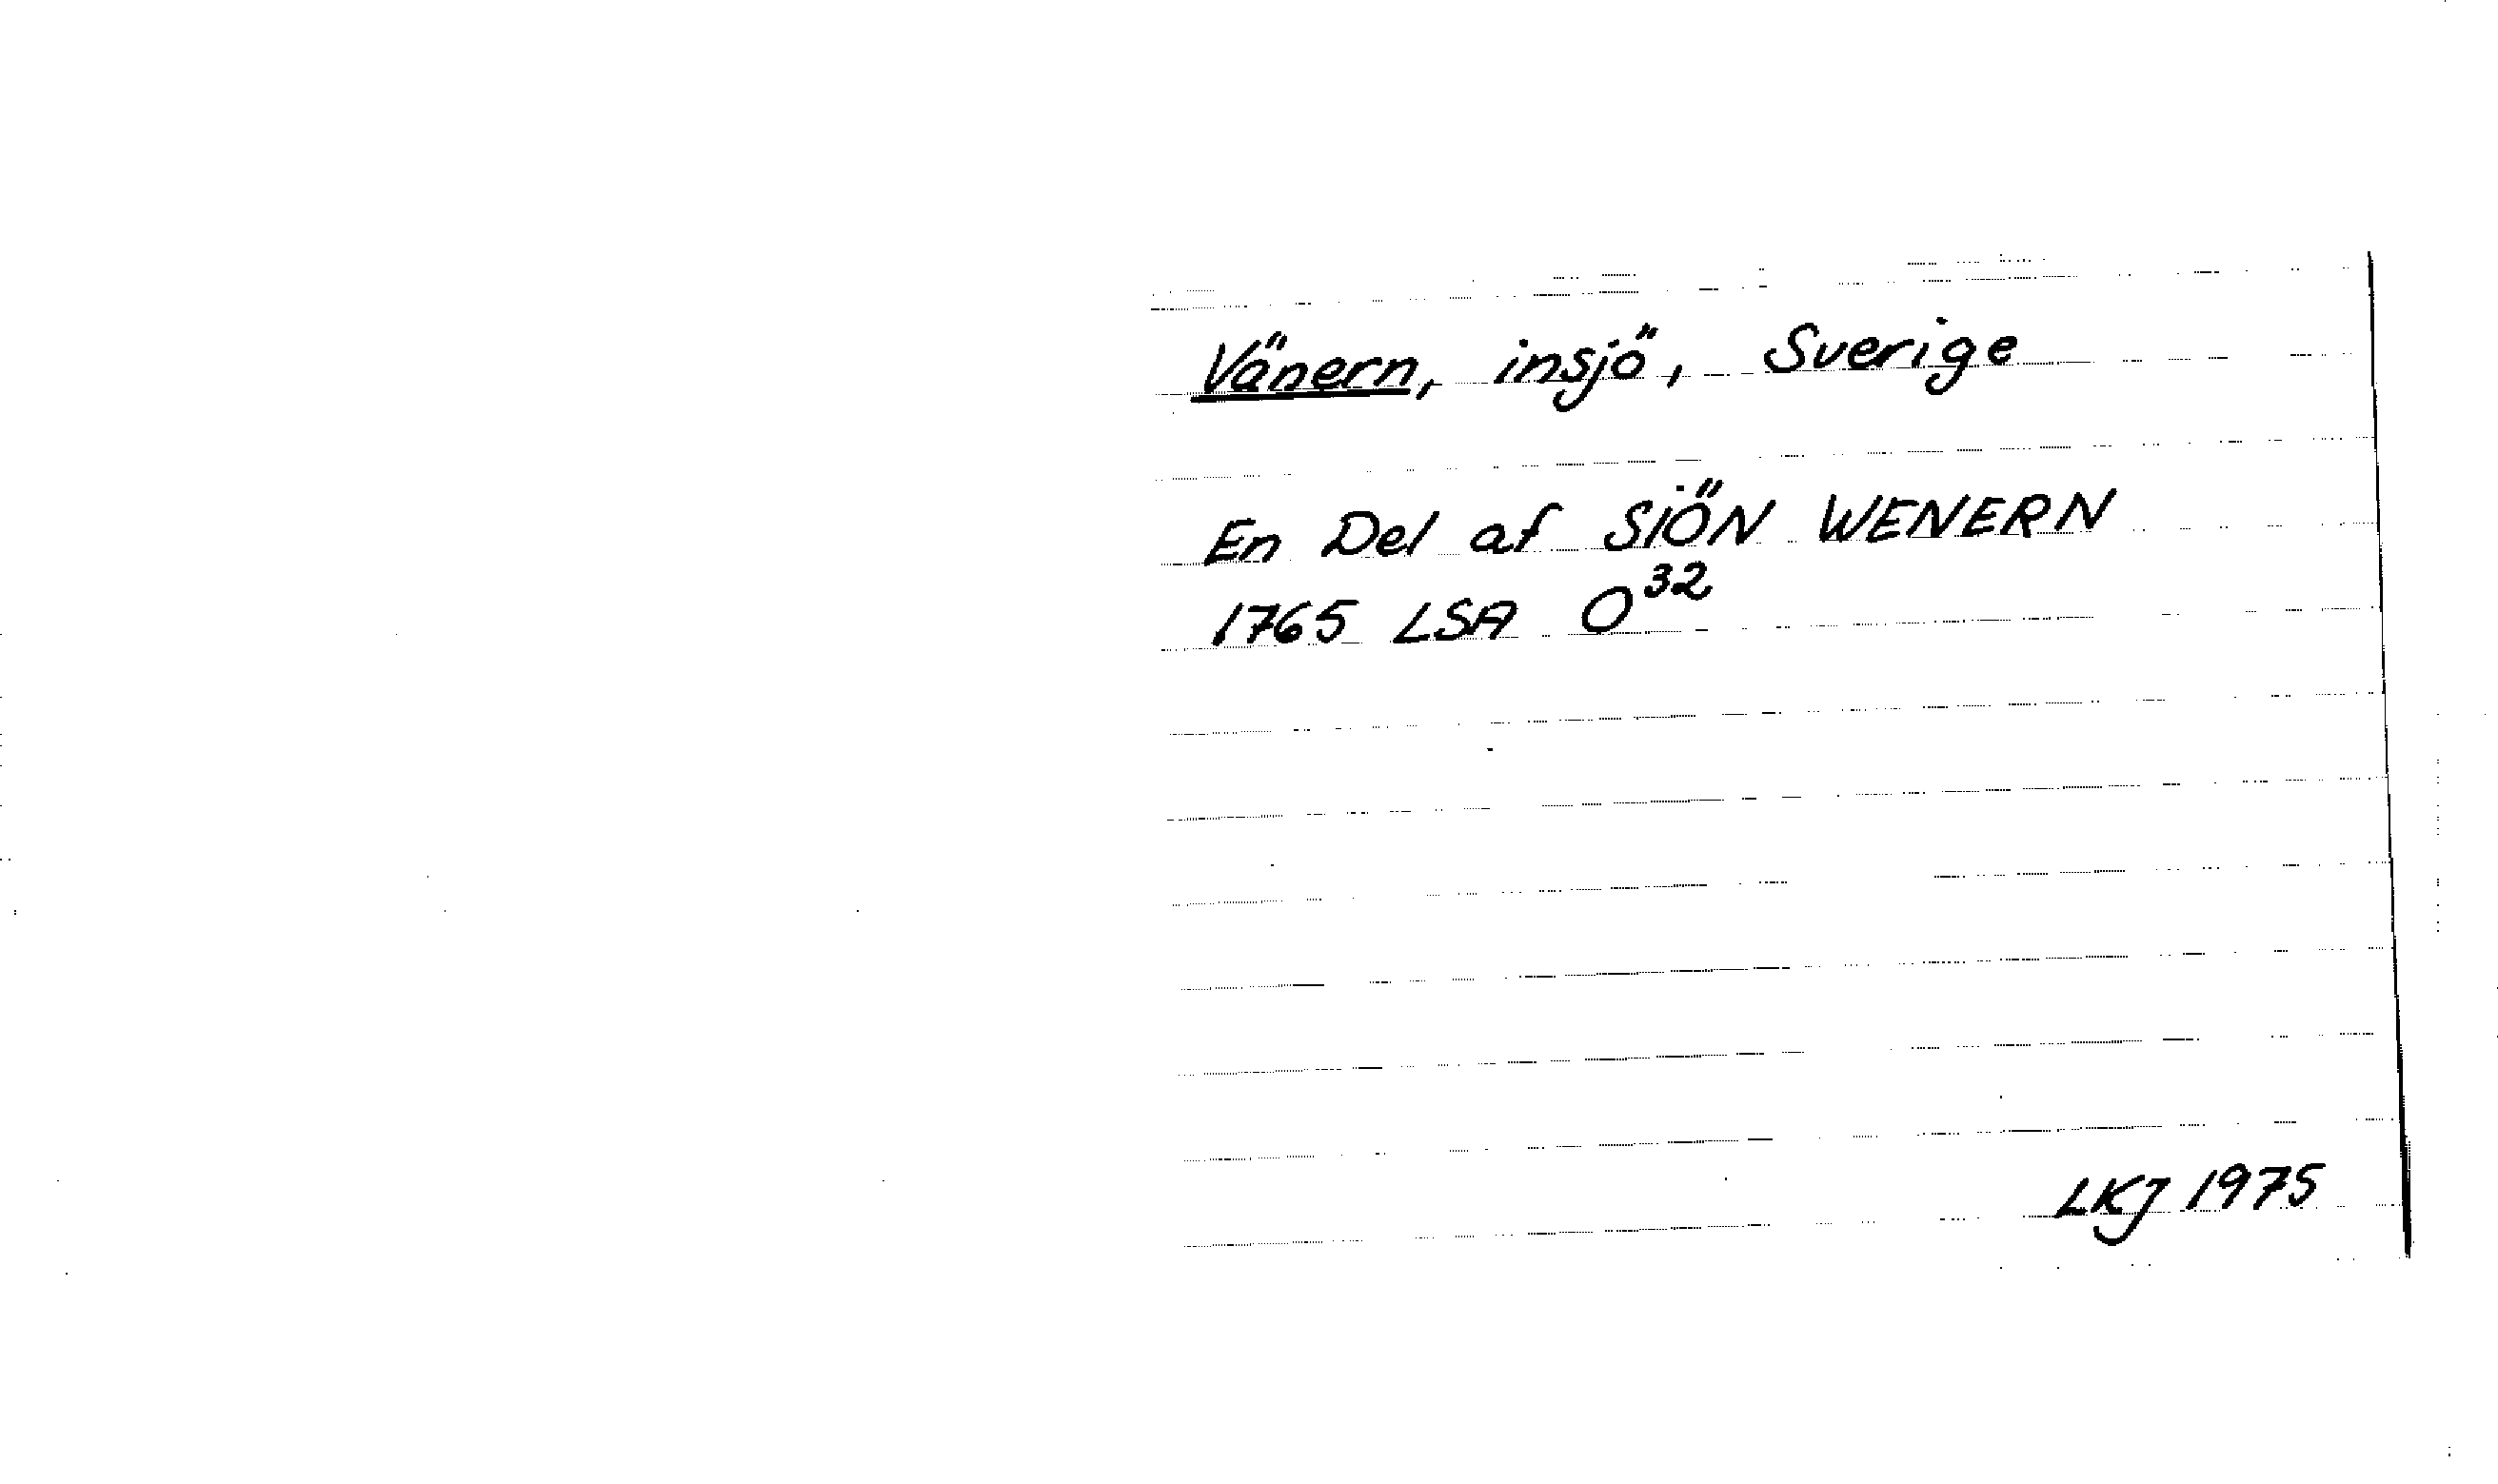 Vänern, insjö, Sverige
En Del af SIÖN WENERN
1765 LSA O³²
LKJ 1975